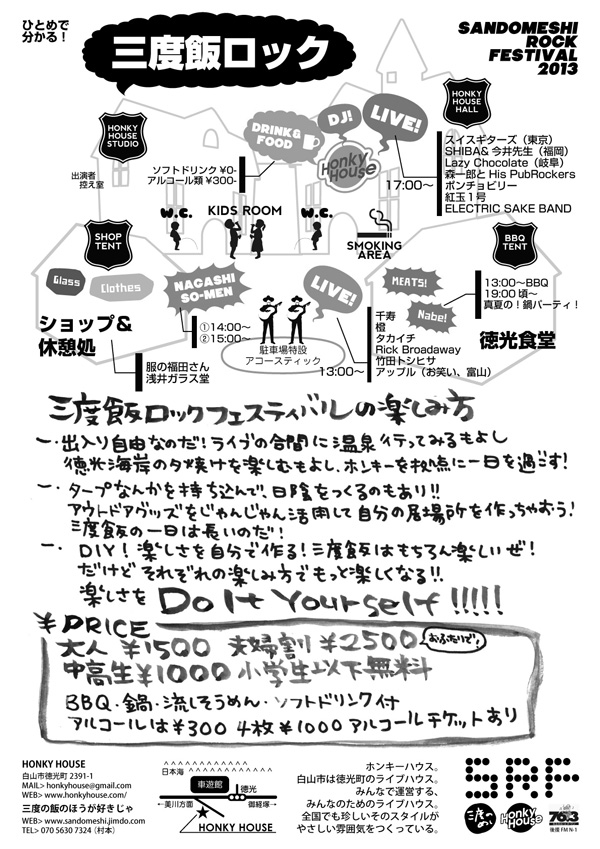 ひとめで
分かる!
三度飯ロック
SANDOMESHI
ROCK
FESTIVAL
2013
HONKY
HOUSE
STUDIO
出演者
控え室
DRINK&
FOOD
ソフトドリンク ¥0-
アルコール類 ¥300-
DJ!
LIVE!
Honky
House
17:00〜
HONKY
HOUSE
HALL
スイスギターズ(東京)
SHIBA& 今井先生(福岡)
Lazy Chocolate(岐阜)
森一郎と His PubRockers
ボンチョビリー
紅玉1号
ELECTRIC SAKE BAND
W.C.
KIDS ROOM
W.C.
SMOKING
AREA
SHOP
TENT
Glass
Clothes
ショップ&
休憩処
服の福田さん
浅井ガラス堂
NAGASHI
SO-MEN
①14:00〜
②15:00〜
駐車場特設
アコースティック
LIVE!
13:00〜
千寿
橙
タカイチ
Rick Broadaway
竹田トシヒサ
アップル(お笑い、富山)
MEATS!
Nabe!
BBQ
TENT
13:00〜BBQ
19:00 頃〜
真夏の!鍋パーティ!
徳光食堂
三度飯ロックフェスティバルの楽しみ方
一・出入り自由なのだ!ライブの合間に温泉行ってみるもよし
徳光海岸の夕焼けを楽しむもよし、ホンキーを拠点に一日を過ごす!
一・タープなんかを持ち込んで、日陰をつくるのもあり!!
アウトドアグッズをじゃんじゃん活用して自分の居場所を作っちゃおう!
三度飯の一日は長いのだ!
一・DIY!楽しさを自分で作る!三度飯はもちろん楽しいぜ!
だけど それぞれの楽しみ方でもっと楽しくなる!!
楽しさを Do It Yourself!!!!!
¥PRICE
大人 ¥1500 夫婦割 ¥2500 おふたりで!
中高生¥1000 小学生以下無料
BBQ・鍋・流しそうめん・ソフトドリンク付
アルコールは¥300 4枚¥1000アルコールチケットあり
HONKY HOUSE
白山市徳光町 2391-1
MAIL> honkyhouse@gmail.com
WEB> www.honkyhouse.com/
三度の飯のほうが好きじゃ
WEB> www.sandomeshi.jimdo.com
TEL> 070 5630 7324(村本)
日本海
車遊館
徳光
←美川方面
御経塚→
HONKY HOUSE
ホンキーハウス。
白山市は徳光町のライブハウス。
みんなで運営する、
みんなのためのライブハウス。
全国でも珍しいそのスタイルが
やさしい雰囲気をつくっている。
SRF
三度のめし
Honky
House
76.3
後援 FM N-1